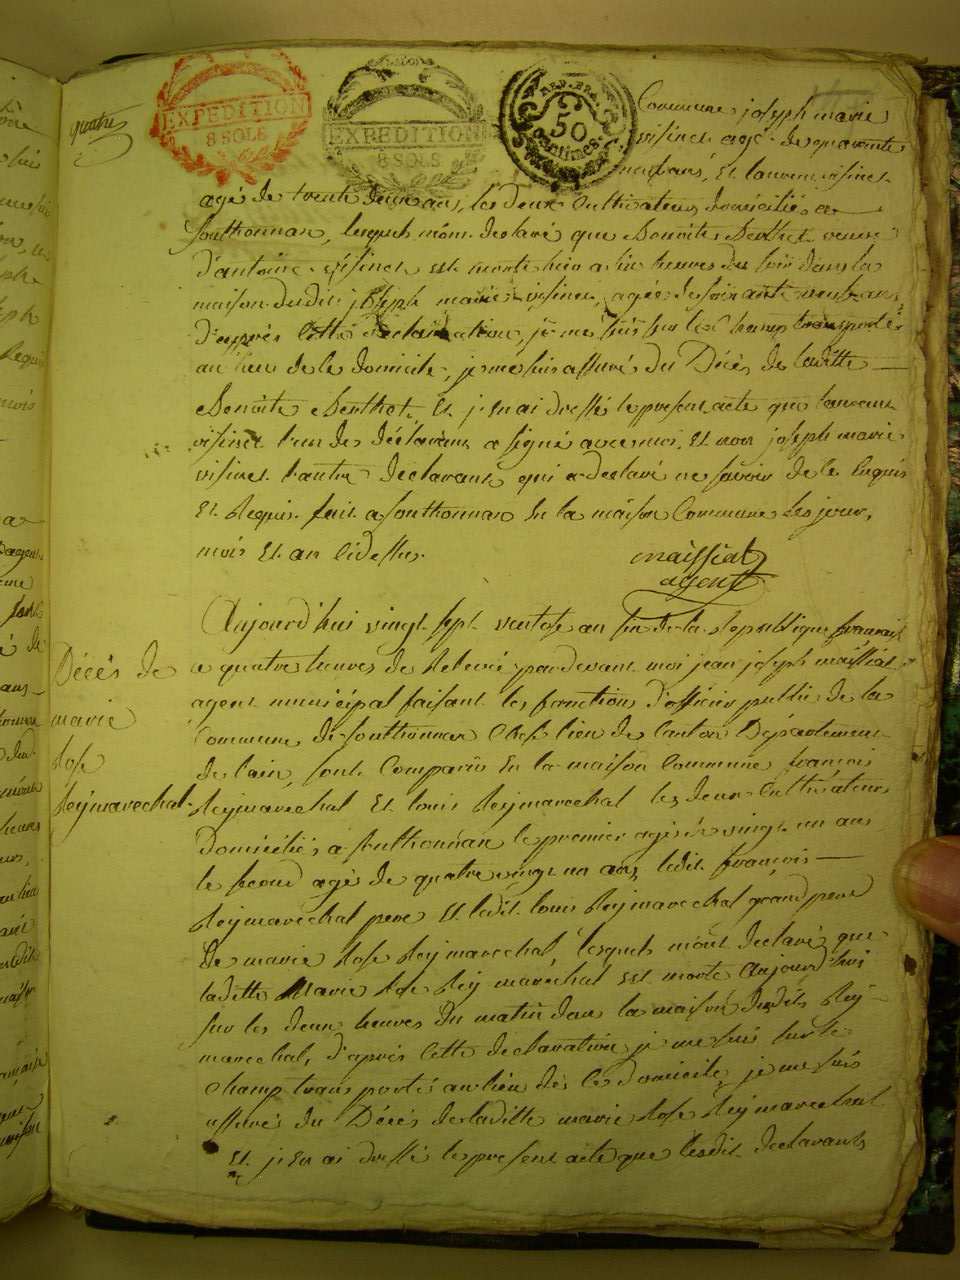 quatre
EXPEDITION
8 SOLS
EXPEDITION
8 SOLS
50
centimes
Commune joseph marie
visinet agé de quarante
neuf ans, et laurent visinet
agé de trente deux ans, les deux cultivateurs domiciliés a
Southonnax, lesquels m'ont declaré que Benoite Berthet veuve
d'antoine visinet est morte hier a six heures du soir dans la
maison dudit joseph marie visinet, agée de soixante neuf ans,
d'après cette déclaration, je me suis sur le champ transporté
au lieu de le domicile, je me suis assuré du Décès de laditte
Benoite Berthet. Et j'en ai dressé le present acte que laurent
visinet l'un des déclarans a signé avec moi, Et non joseph marie
visinet l'autre déclarant qui a declaré ne savoir de le enquis
Et Requis. fait a Southonnax En la maison Commune les jour,
mois Et an cidessus.
maissiat
agent
Aujourd'hui vingt sept ventose an six de la Republique francaise
a quatre heures de Relevée pardevant moi jean joseph maissiat
agent municipal faisant les fonctions d'officier public de la
Commune de Southonnax Chef lieu de Canton Département
de l'ain, sont Comparus En la maison Commune françois
Reymarechal Et louis Reymarechal les deux Cultivateurs
Domiciliés a Southonnax le premier agé de vingt un ans
le second agé de quatre vingt un ans, ledit françois
Reymarechal pere Et ledit louis Reymarechal grand pere
de marie Rose Reymarechal, lesquels m'ont declaré que
laditte Marie Rose Rey marechal est morte Aujourd'hui
sur les deux heures du matin dans la maison dudit Rey-
marechal, d'après cette declaration je me suis sur le
champ transporté au lieu dès les domicile, je me suis
assuré du Décès de laditte marie Rose Reymarechal
Et j'en ai dressé le present acte que lesdit déclarants
Décès de
marie
Rose
Reymarechal.